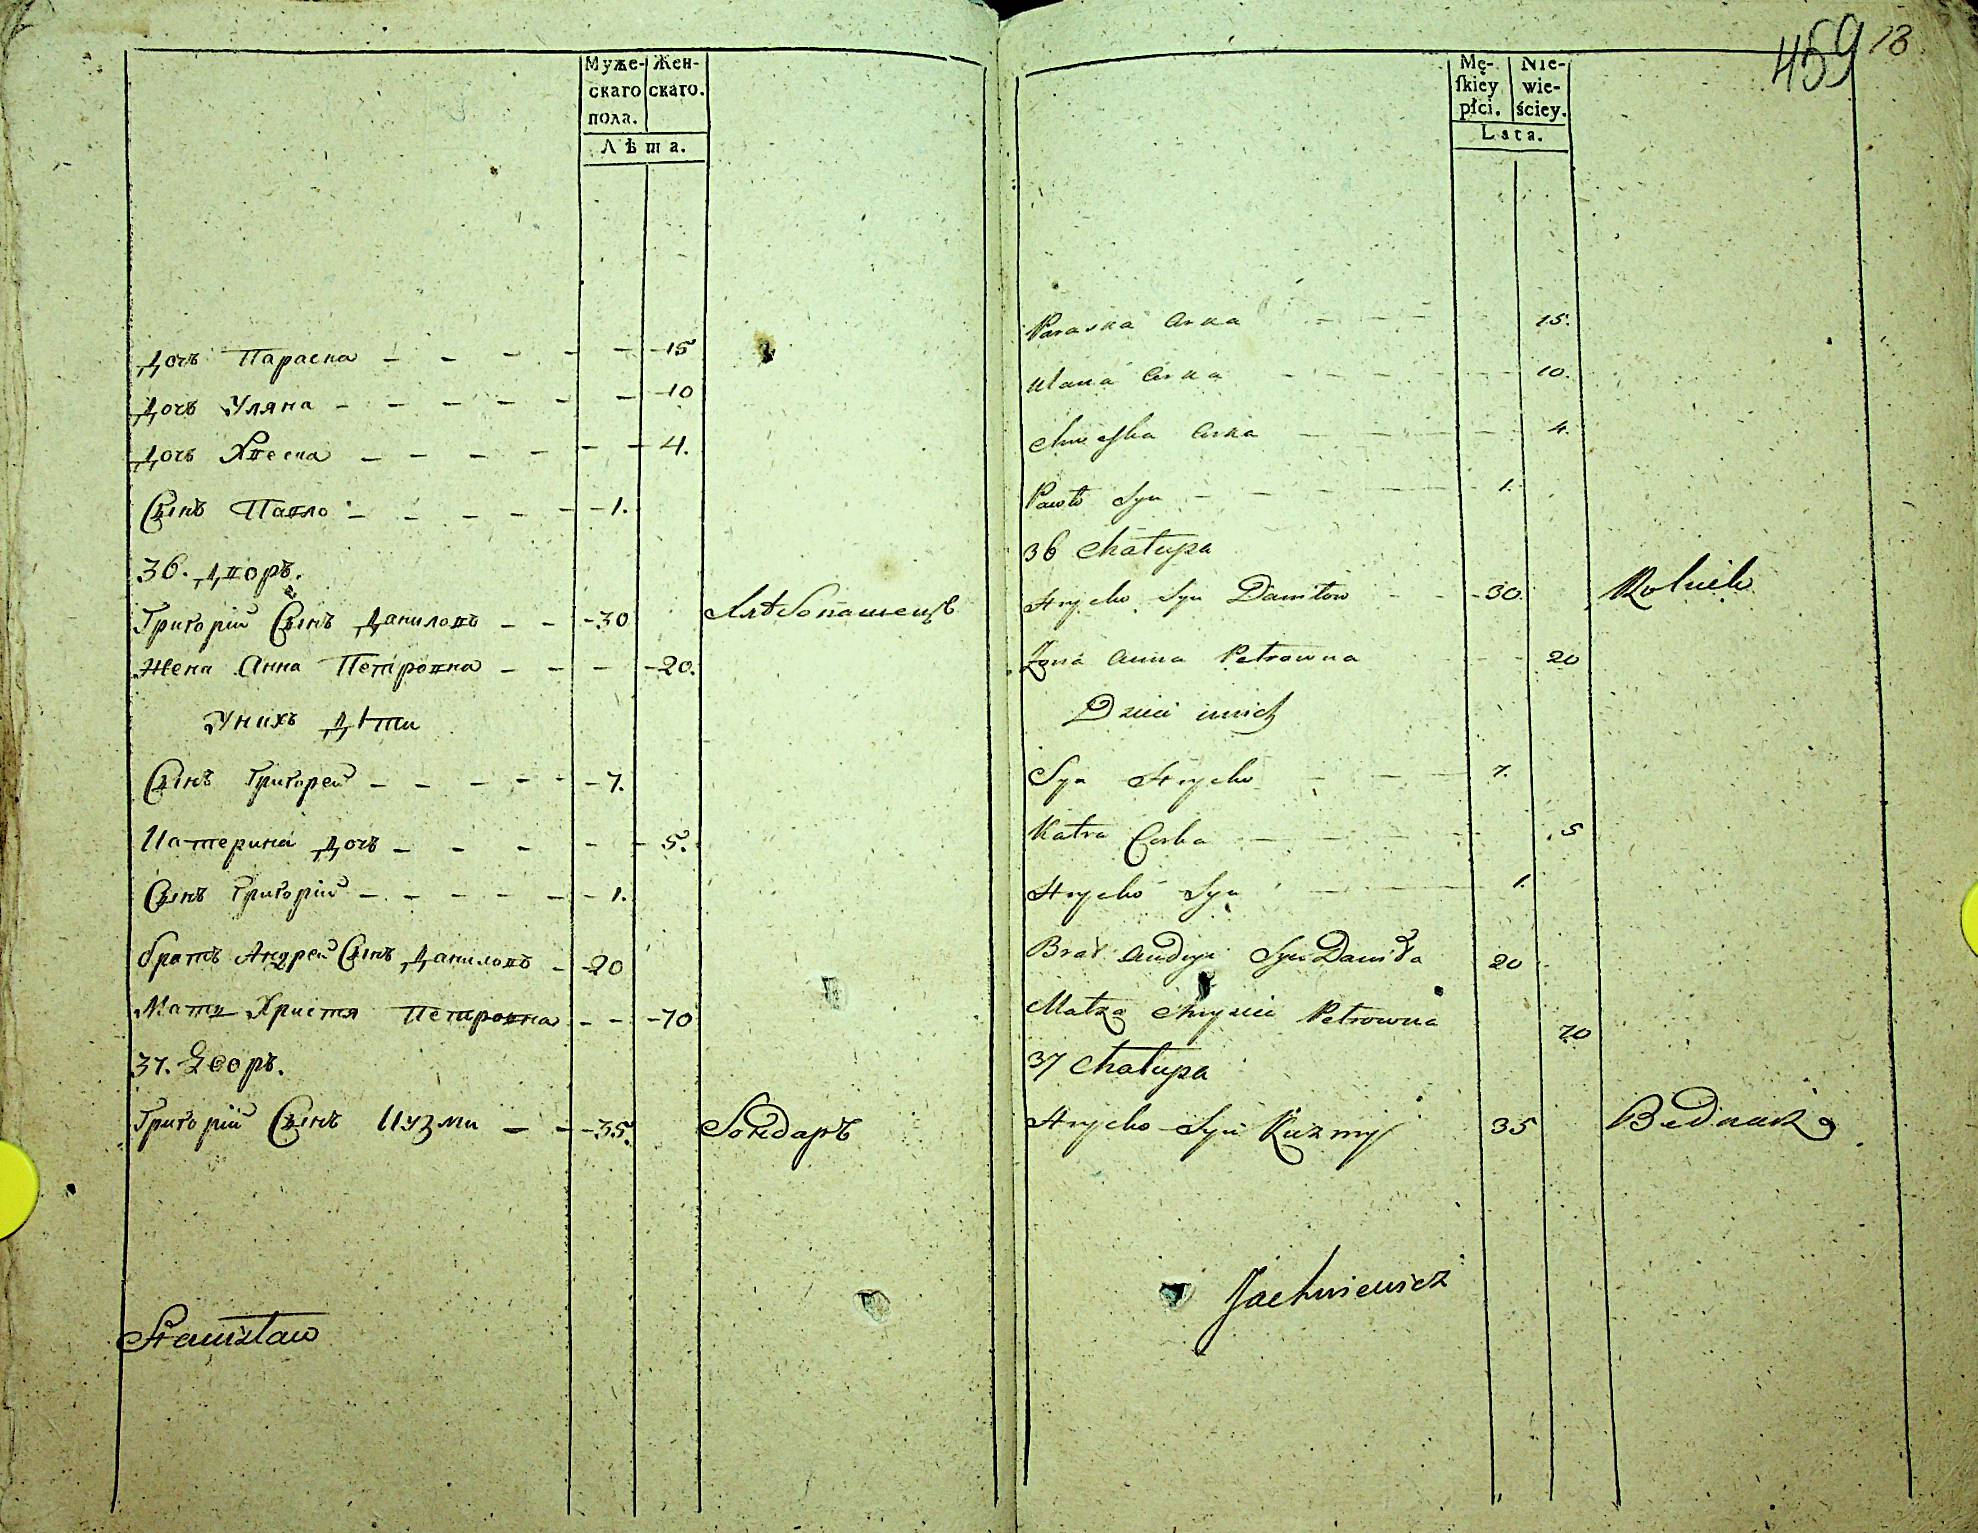 Муже- Жен-
скаго скаго.
пола.
Лѣта.
Дочъ Параска - - - - - 15
Дочъ Уляна - - - - - - 10
Дочъ Хвеска - - - - - - 4.
Сынъ Павло - - - - - 1.
36. Дворъ.
Григорій Сынъ Даниловъ - - 30 Хлѣбопашецъ
Жена Анна Петровна - - - - 20.
Унихъ Дѣти
Сынъ Григорей - - - - - 7.
Катерина Дочъ - - - - - 5.
Сынъ Григорій - - - - - 1.
братъ Андрей Сынъ Даниловъ - 20
Мати Христя Петровна - - - 70
37. Дворъ.
Григорій Сынъ Кузми - - - 35. бондаръ
Stanisław
459 13
Mę- Nie-
ſkiey wie-
płci. ściey.
Lata.
Paraska Curka - - - - 15.
Ulana Curka - - - - - 10.
Chweſka Curka - - - - 4.
Pawło Syn - - - - 1.
36 Chałupa
Hrycko Syn Daniłow - - 30. Rolnik
Zona Anna Petrowna - - 20
Dzieci unich
Syn Hrycko - - - 7.
Katra Corka - - - - 5
Hrycko Syn - - - 1.
Brat Andryi Syn Daniła 20
Matka Chrycia Petrowna 70
37 Chałupa
Hrycko Syn Kuzmy 35 Bednarz
Jachniewicz